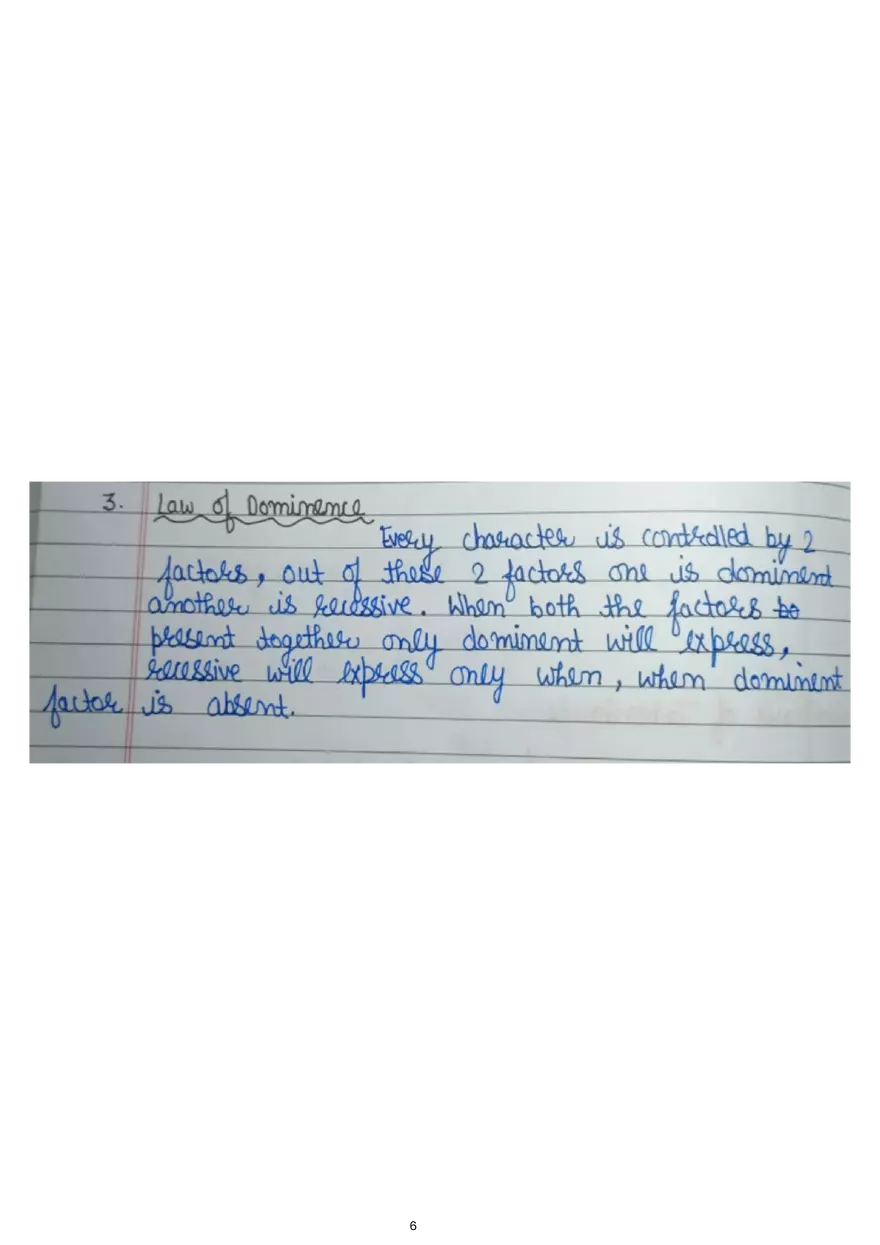 3. Law of Dominence
Every character is controlled by 2
factors, out of these 2 factors one is dominent
another is recessive. When both the factors
present together only dominent will express,
recessive will express only when, when dominent
factor is absent.
6